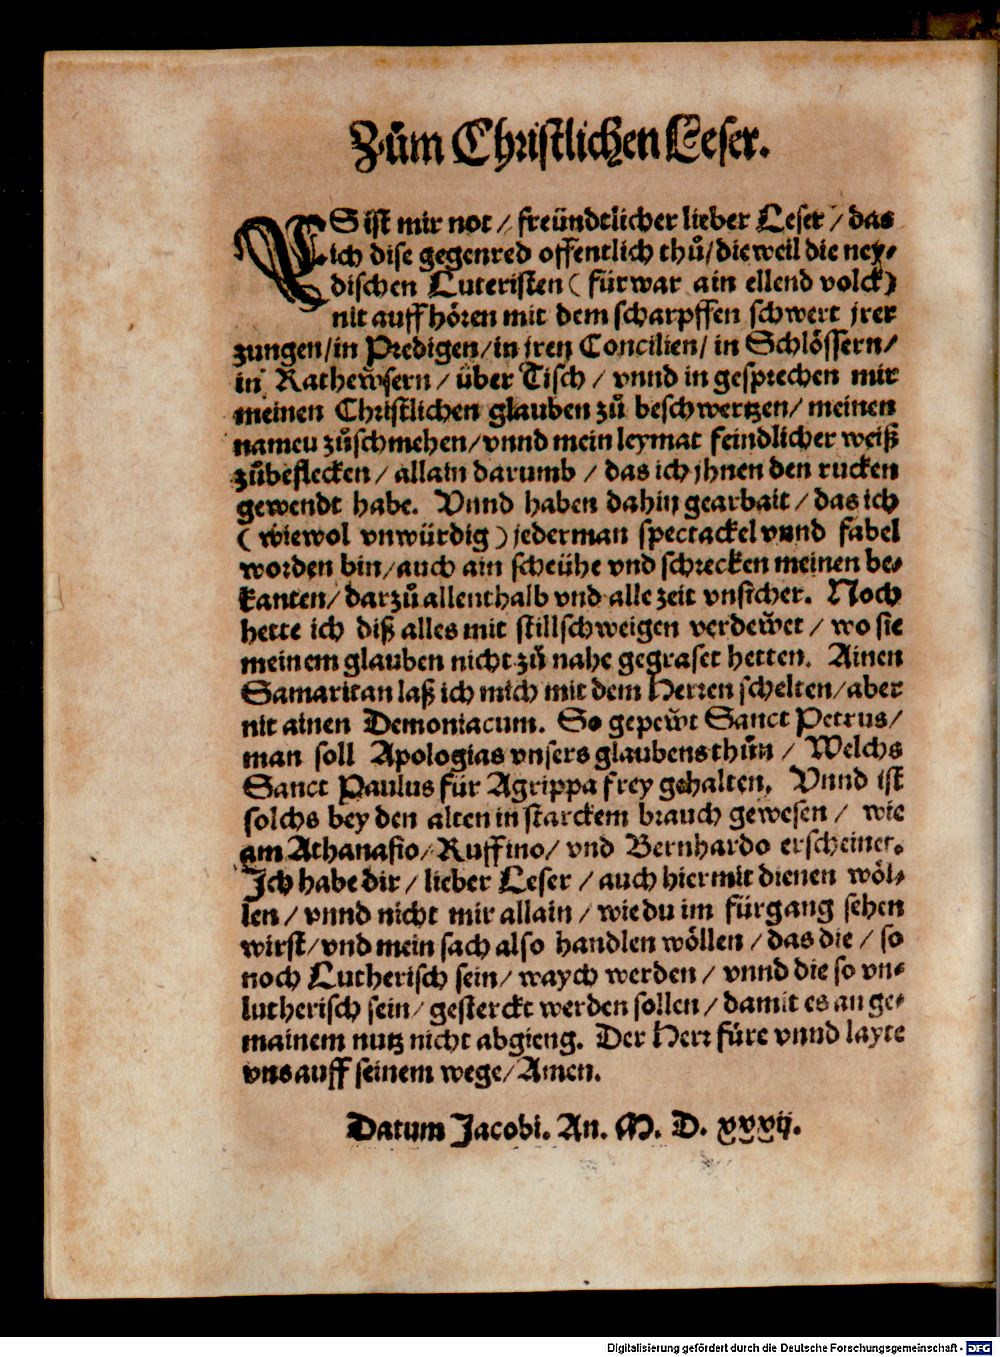 Zům Christlichen Leser.
ES ist mir not / freündtlicher lieber Leser / das
ich dise gegenred offentlich thů / die weil die ney-
dischen Luteristen ( fürwar ain ellend volck )
nit auffhören mit dem scharpffen schwert jrer
zungen / in Predigen / in jren Concilien / in Schlössern /
in Rathewͤsern / über Tisch / vnnd in gesprechen mir
meinen Christlichen glauben zů beschwertzen / meinen
nameu zůschmehen / vnnd mein leymat feindlicher weiß
zůbeflecken / allain darumb / das ich jhnen den rucken
gewendt habe. Vnnd haben dahin gearbait / das ich
( wiewol vnwürdig ) jederman spectackel vnnd fabel
worden bin / auch ain scheühe vnd schrecken meinen be-
kanten / darzů allenthalb vnd alle zeit vnsicher. Noch
hette ich diß alles mit stillschweigen verdewͤt / wo sie
meinem glauben nicht zů nahe gegraset hetten. Ainen
Samaritan laß ich mich mit dem Herren schelten / aber
nit ainen Demoniacum. So gepewͤt Sanct Petrus /
man soll Apologias vnsers glaubens thůn / Welchs
Sanct Paulus für Agrippa frey gehalten, Vnnd ist
solchs bey den alten in starckem brauch gewesen / wie
am Athanasio / Ruffino / vnd Bernhardo erscheinet.
Ich habe dir / lieber Leser / auch hiermit dienen wöl-
len / vnnd nicht mir allain / wie du im fürgang sehen
wirst / vnd mein sach also handlen wöllen / das die / so
noch Lutherisch sein / waych werden / vnnd die so vn-
lutherisch sein / gesterckt werden sollen / damit es an ge-
mainem nutz nicht abgieng. Der Herr füre vnnd layte
vns auff seinem wege / Amen.
Datum Jacobi. An. M. D. xxxij.
Digitalisierung gefördert durch die Deutsche Forschungsgemeinschaft - DFG